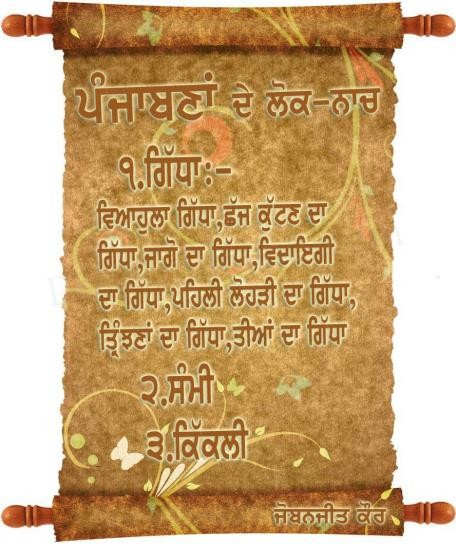 ਪੰਜਾਬਣਾਂ ਦੇ ਲੋਕ-ਨਾਚ
੧.ਗਿੱਧਾ:-
ਵਿਆਹੁਲਾ ਗਿੱਧਾ,ਛੱਜ ਕੁੱਟਣ ਦਾ
ਗਿੱਧਾ,ਜਾਗੋ ਦਾ ਗਿੱਧਾ,ਵਿਦਾਇਗੀ
ਦਾ ਗਿੱਧਾ,ਪਹਿਲੀ ਲੋਹੜੀ ਦਾ ਗਿੱਧਾ,
ਤ੍ਰਿੰਝਣਾਂ ਦਾ ਗਿੱਧਾ,ਤੀਆਂ ਦਾ ਗਿੱਧਾ
੨.ਸੰਮੀ
੩.ਕਿੱਕਲੀ
ਜੋਬਨਜੀਤ ਕੌਰ